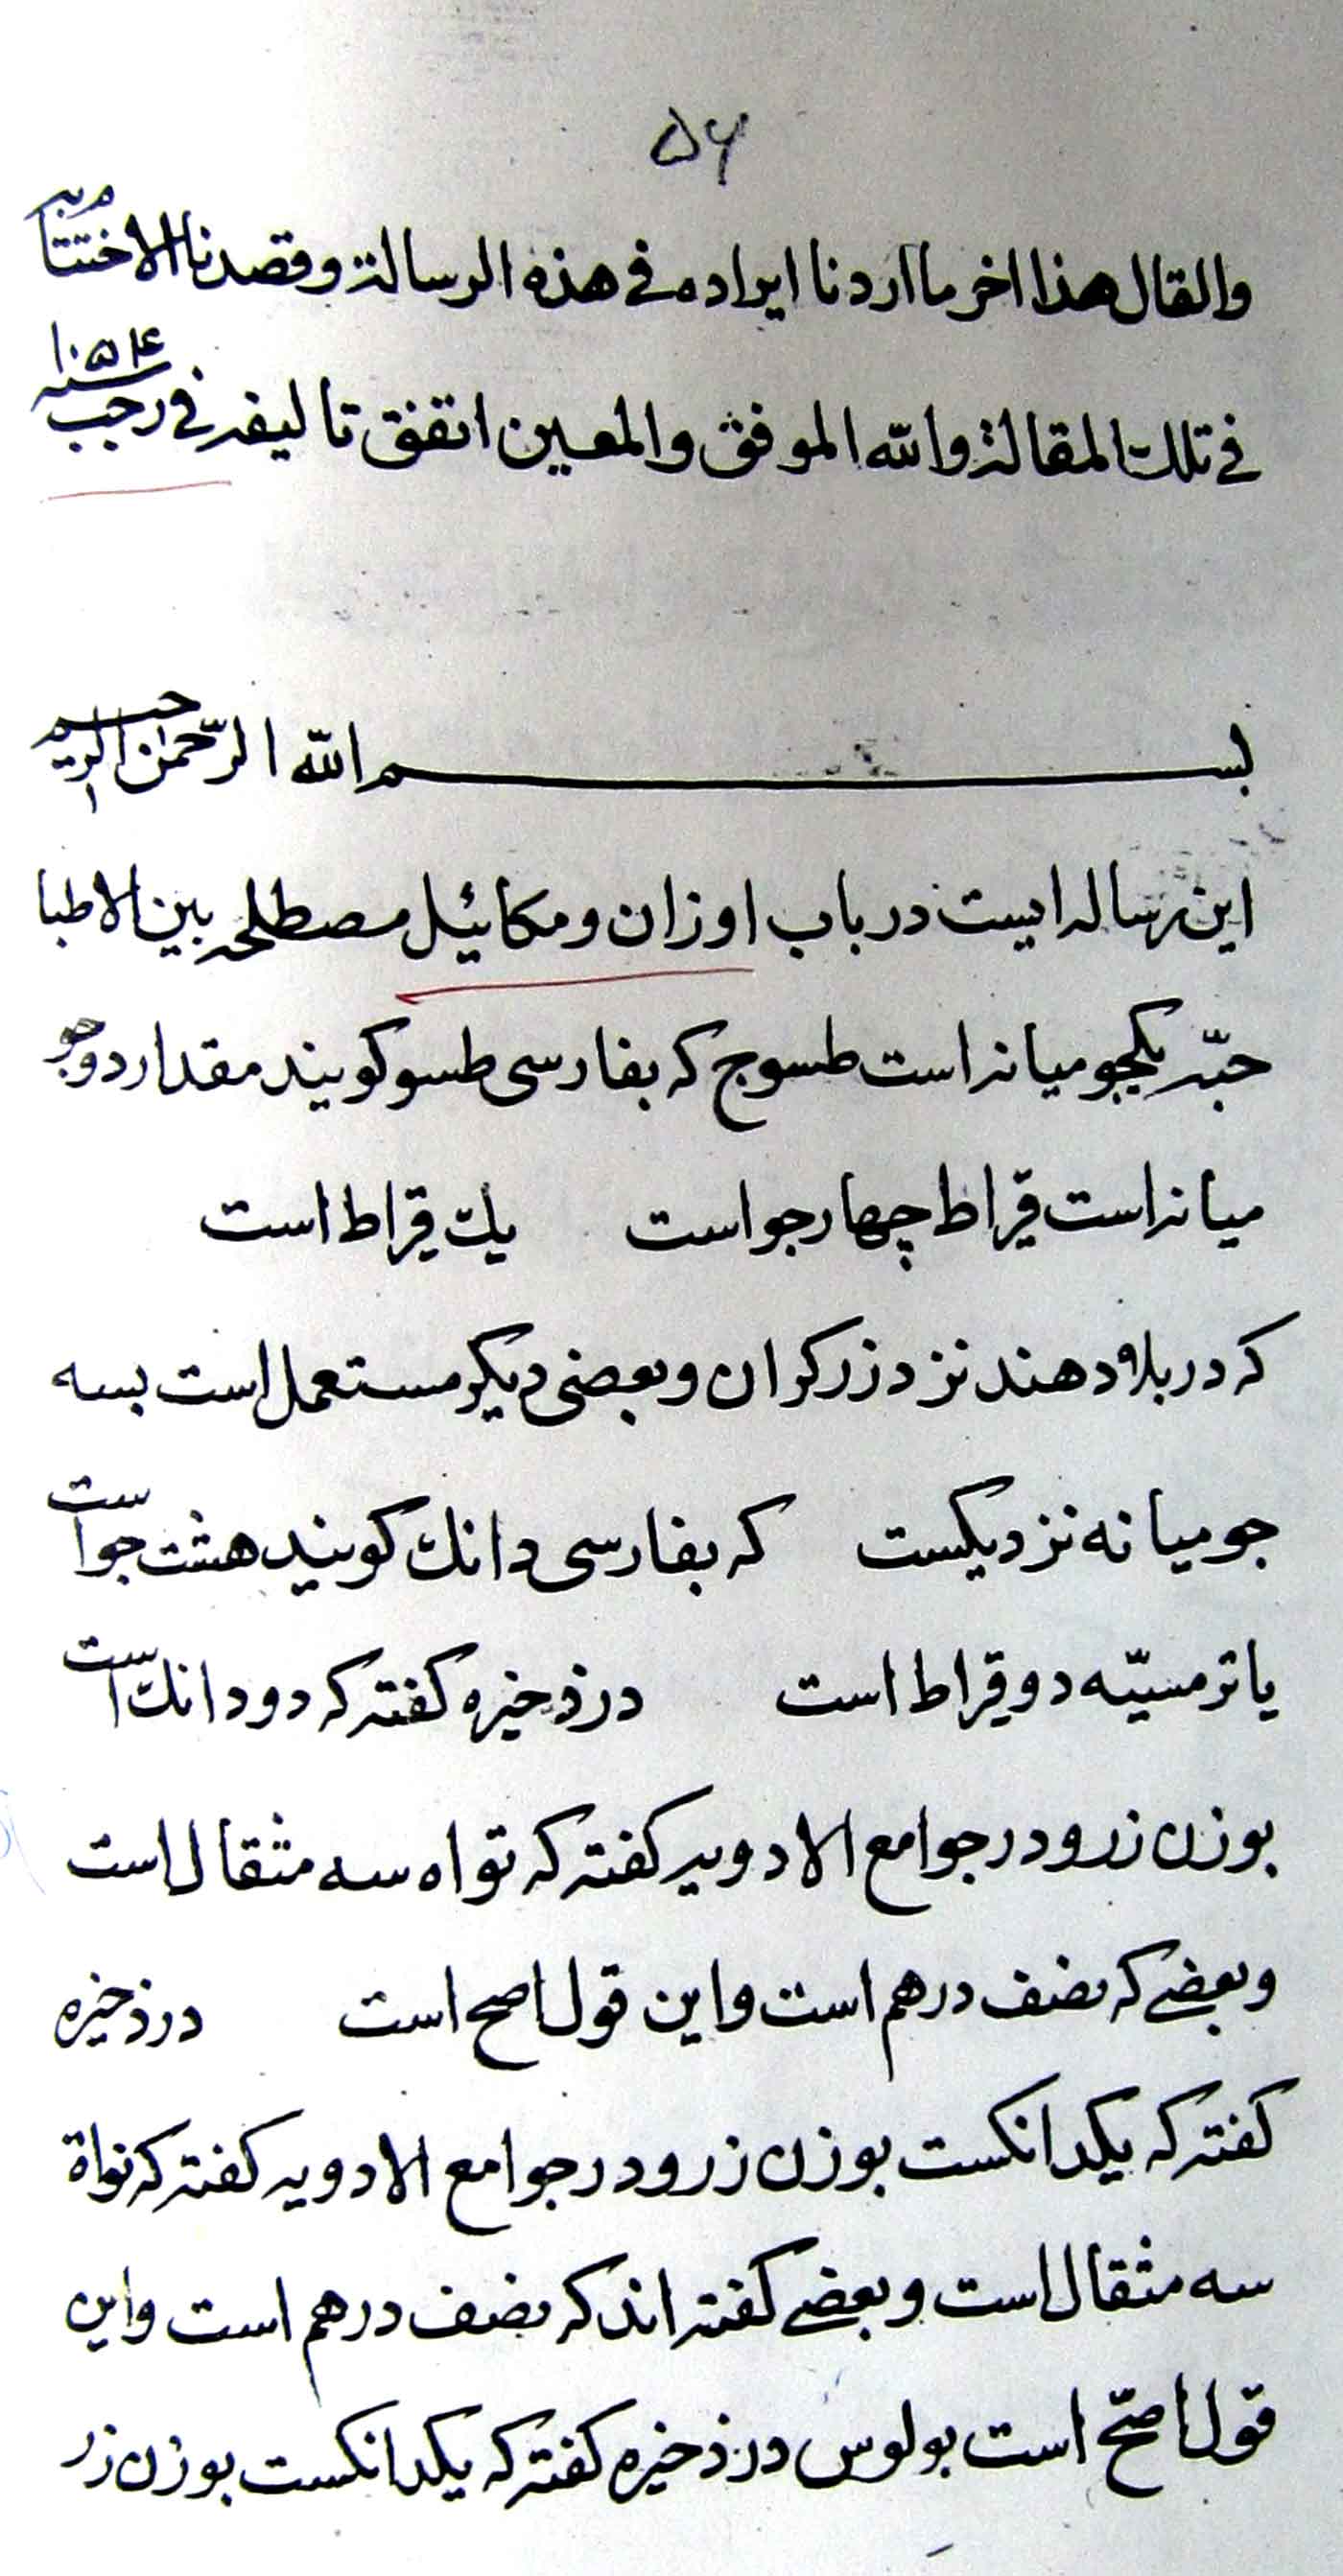 ۵۶
والقال هذا اخر ما اردنا ايراده فی هذه الرسالة وقصدنا الاختتام به
فی تلك المقالة والله الموفق والمعين اتفق تاليفه فی رجب سنه ۱۰۵۴
بسم الله الرّحمن الرحيم
اين رساله ايست در باب اوزان ومكائيل مصطلحه بين الاطبا
حبّه يكجو ميانه است طسوج كه بفارسی طسو كويند مقدار دوجو
ميانه است قيراط چهار جو است يك قيراط است
كه در بلاد هند نزد زركران وبعضی ديكر مستعمل است بسه
جو ميانه نزديكست كه بفارسی دانك كويند هشت جو است
يا ترمسيّه دو قيراط است در ذخيره كفته كه دو دانك است
بوزن زر و در جوامع الادويه كفته كه نواه سه مثقال است
وبعضے كه نصف درهم است واين قول اصح است در ذخيره
كفته كه يكدانكست بوزن زر و در جوامع الادويه كفته كه نواة
سه مثقال است وبعضے كفته اند كه نصف درهم است واين
قول اصحّ است بولوس در ذخيره كفته كه يكدانكست بوزن زر